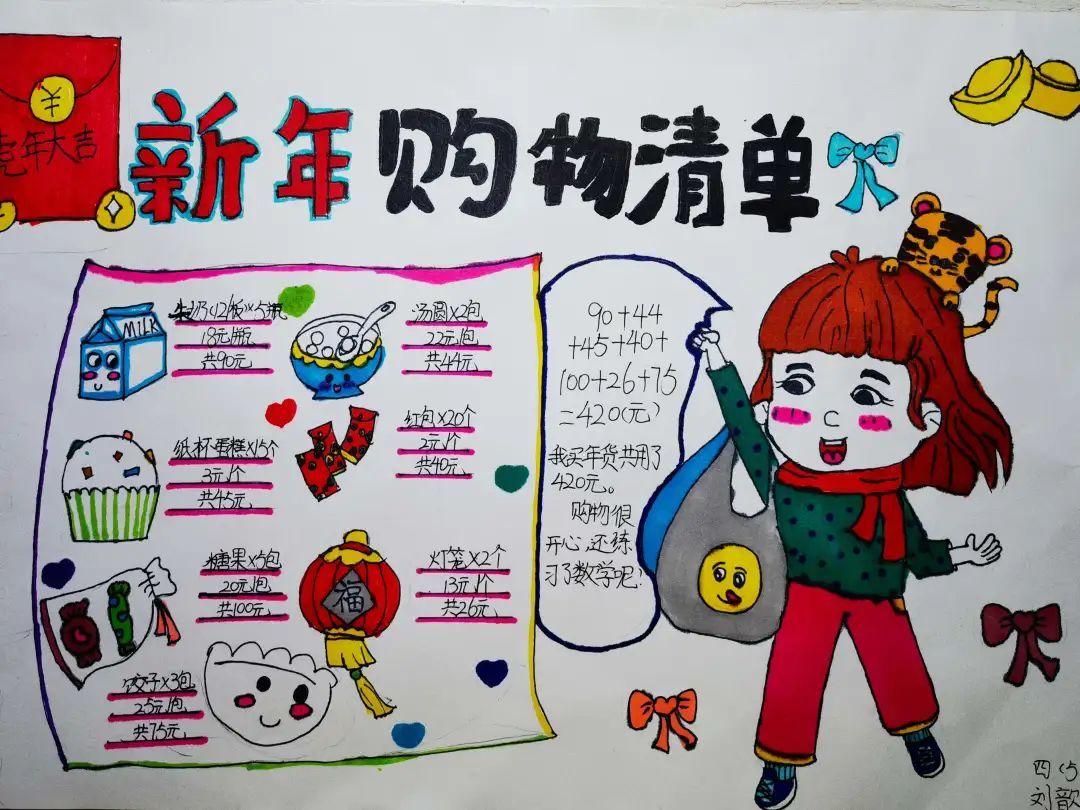 ¥
虎年大吉
新年购物清单
MILK
牛奶(12版)×5瓶
18元/瓶
共90元
汤圆×2包
22元/包
共44元
纸杯蛋糕×15个
3元/个
共45元
红包×20个
2元/个
共40元
糖果×5包
20元/包
共100元
福
灯笼×2个
13元/个
共26元
饺子×3包
25元/包
共75元
90+44
+45+40+
100+26+75
=420(元)
我买年货共用了
420元。
购物很
开心,还练
习了数学呢!
四(5
刘韶